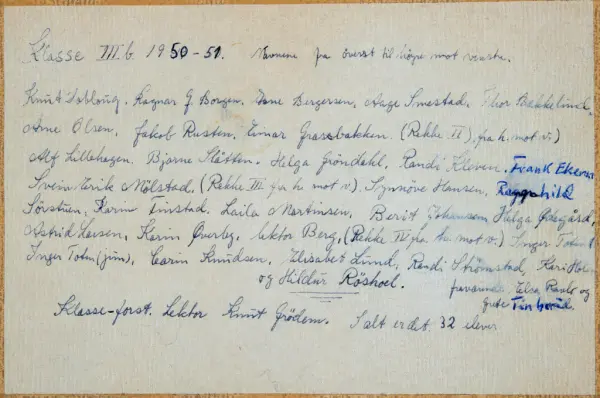 Klasse III b. 1950-51. Navnene fra överst til höire mot venstre.
Knut Dobloug. Ragnar G. Borgen. Arne Bergersen, Aage Smestad. Thor Bakkelund.
Arne Olsen. Jakob Rusten. Einar Grassbakken. (Rekke II, fra h. mot v.)
Alf Lillehagen. Bjarne Slåtten. Helga Gröndahl, Randi Kleven. Frank
Svein Erik Mölstad. (Rekke III fra h. mot v). Synnöve Hansen. Ragnhild
Sörstuen, Karin Finstad. Laila Martinsen. Berit Johansen Helga Ödegård,
Astrid Larsen, Karin Överby, lektor Berg, (Rekke IV fra h. mot v.) Inger Toten
Inger Toten (jun), Karin Knudsen, Elisabet Lund, Randi Strömstad, Kari
og Hildur Röshoel. Elsa og
Grete
Klasse-forst. Lektor Knut Grödem. I alt er det 32 elever.